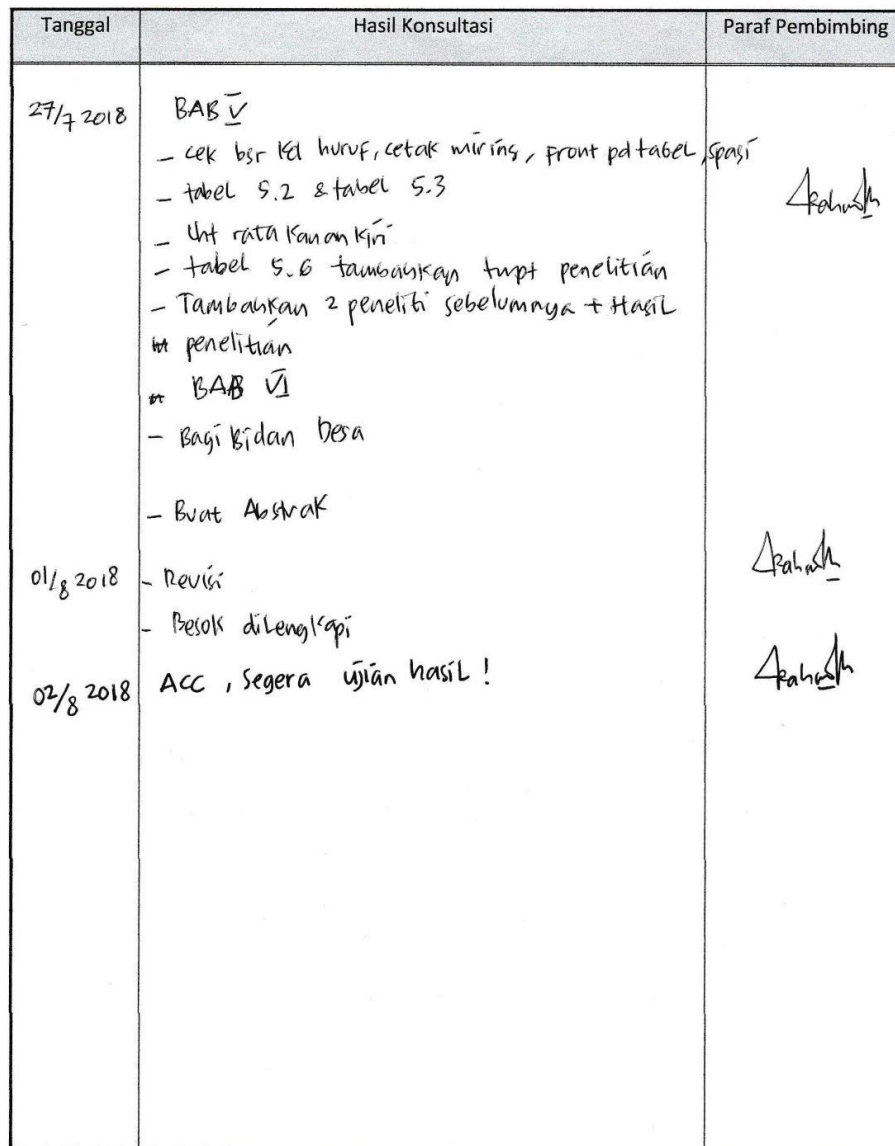 Tanggal Hasil Konsultasi Paraf Pembimbing
27/7 2018 BAB V
- cek bsr kcl huruf, cetak miring, Front pd tabel, spasi
- tabel 5.2 & tabel 5.3
- Lht rata Kanan Kiri
- tabel 5.6 tambahkan tmpt penelitian
- Tambahkan 2 peneliti sebelumnya + Hasil
penelitian
BAB VI
- Bagi Bidan Desa
- Buat Abstrak
01/8 2018 - Revisi
- Besok dilengkapi
02/8 2018 ACC, Segera ujian hasil!